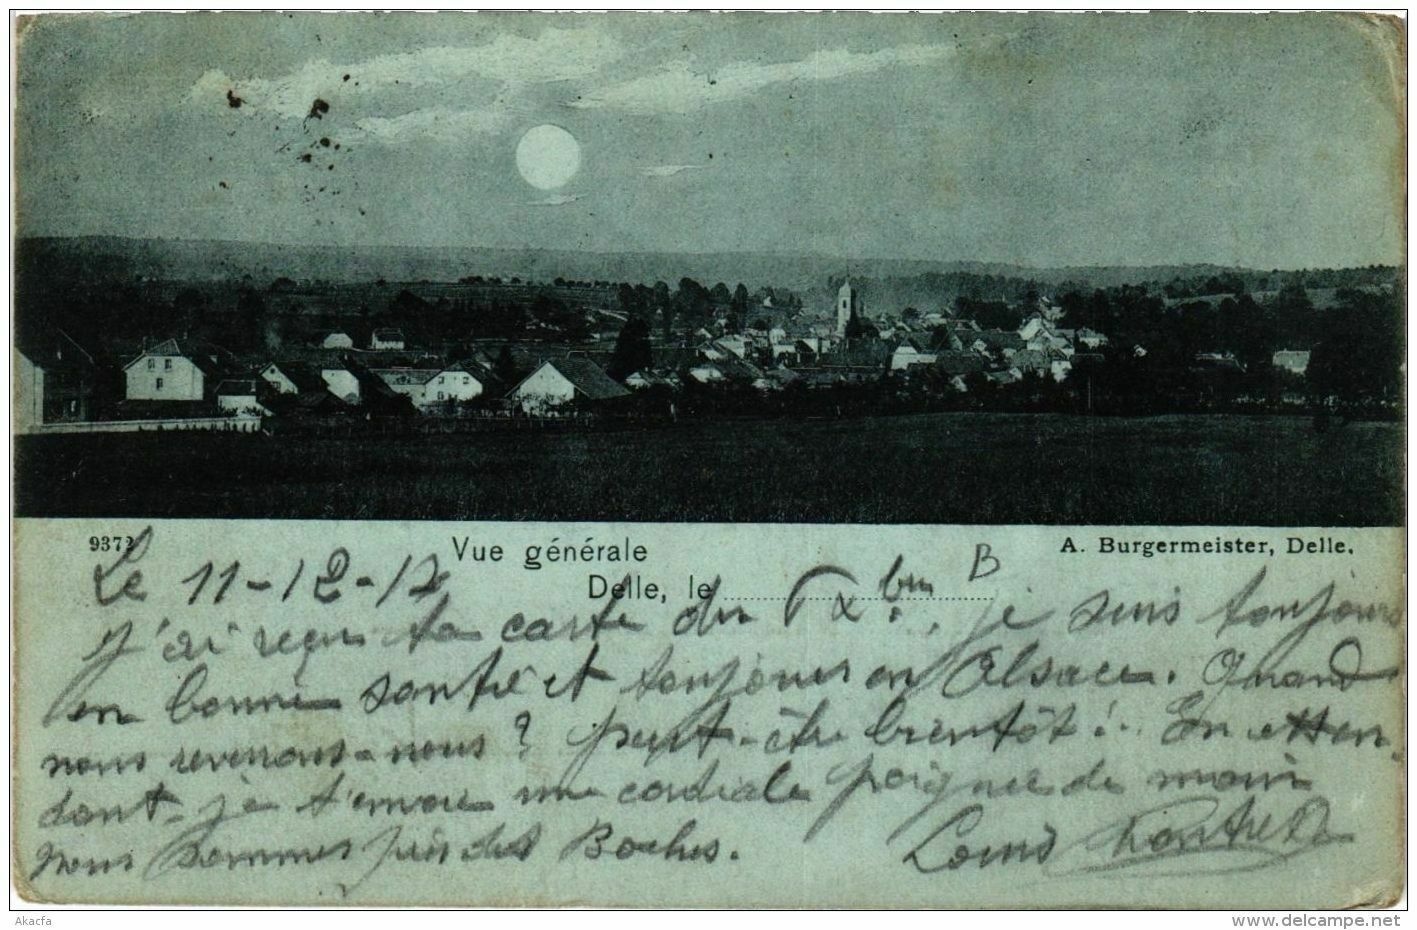 9372
Vue générale
A. Burgermeister, Delle.
Delle, le
Le 11-12-17
J'ai reçu ta carte du xbre, je suis toujours
en bonne santé et toujours en Alsace. Quand
nous reverrons-nous? peut-être bientôt! En atten-
dant je t'envoie une cordiale poignée de main
nous sommes près des Boches. Louis
Akacfa
https://www.delcampe.net